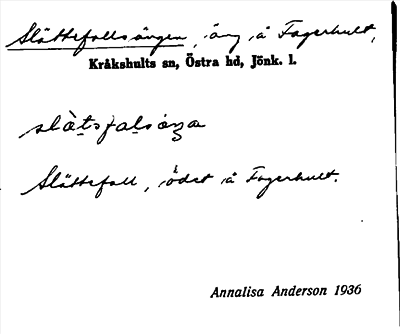 Slättefallsängen, äng å Fagerhult,
Kråkshults sn, Östra hd, Jönk. l.
Slättefall, ödet å Fagerhult.
Annalisa Anderson 1936